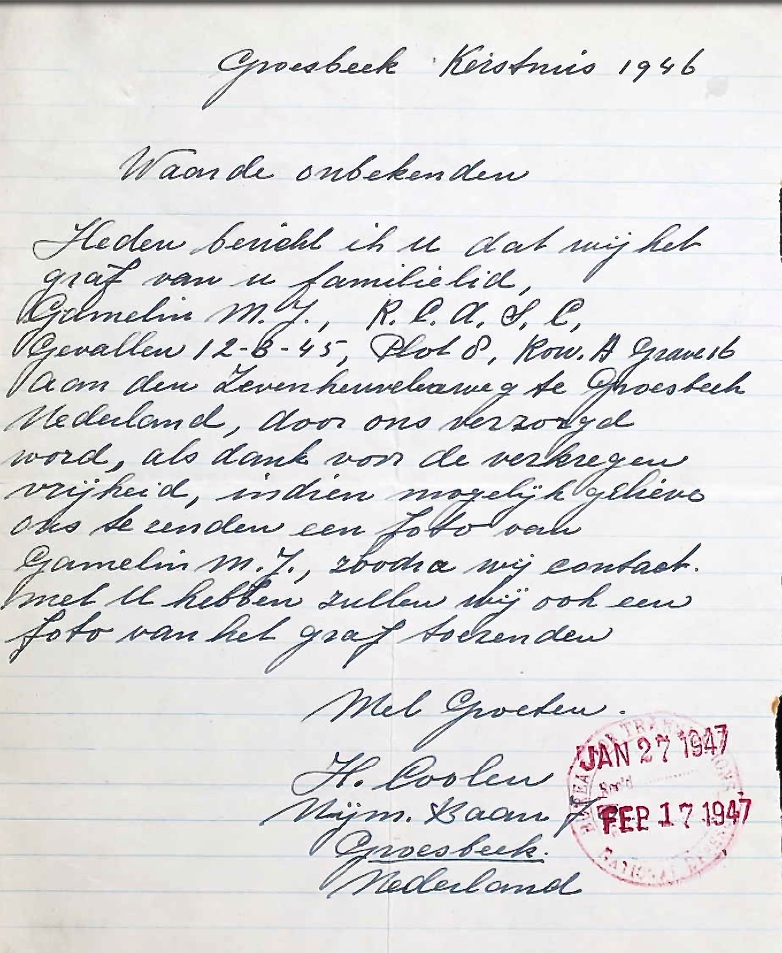 Groesbeek Kerstmis 1946
Waarde onbekenden
Heden bericht ik u dat wij het
graf van u familielid,
Gamelin M. J., R. C. A. S. C,
Gevallen 12-3-45, Plot 8, Row. A Grave 16
aan den Zevenheuvelenweg te Groesbeek
Nederland, door ons verzorgd
word, als dank voor de verkregen
vrijheid, indien mogelijk gelieve
ons te zenden een foto van
Gamelin M. J., zoodra wij contact.
met U hebben zullen wij ook een
foto van het graf toezenden
Met Groeten.
H. Coolen
Nijm. Baan
Groesbeek.
Nederland
JAN 27 1947
Rec'd
FEB 17 1947
NATIONAL